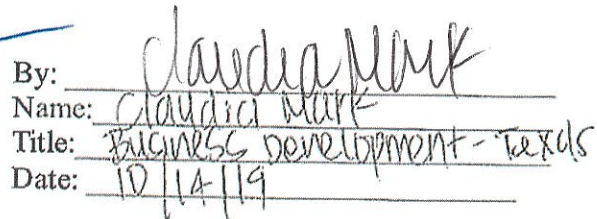 By: Claudia Mark
Name: Claudia Mark
Title: Business Development - Texas
Date: 10/14/19